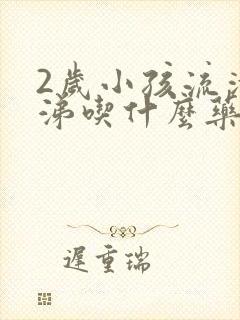 2歲小孩流清
涕喫什麼藥
遲重瑞